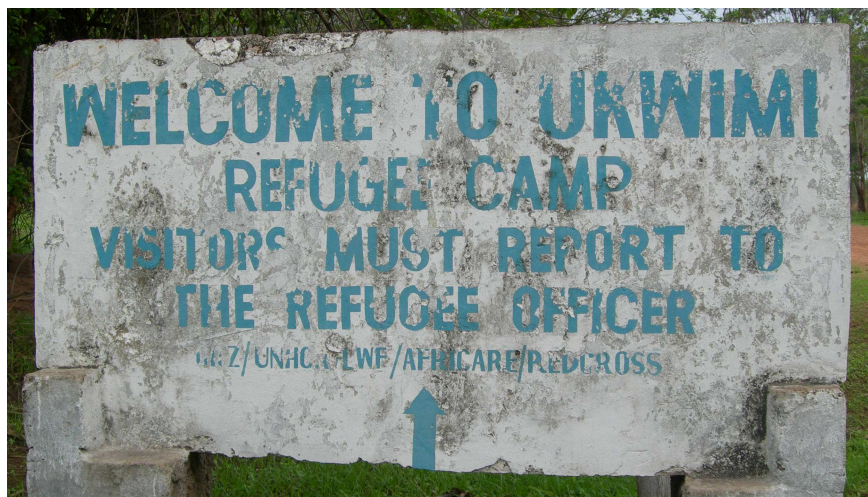 WELCOME TO UKWIMI
REFUGEE CAMP
VISITORS MUST REPORT TO
THE REFUGEE OFFICER
LWF/AFRICARE/REDCROSS